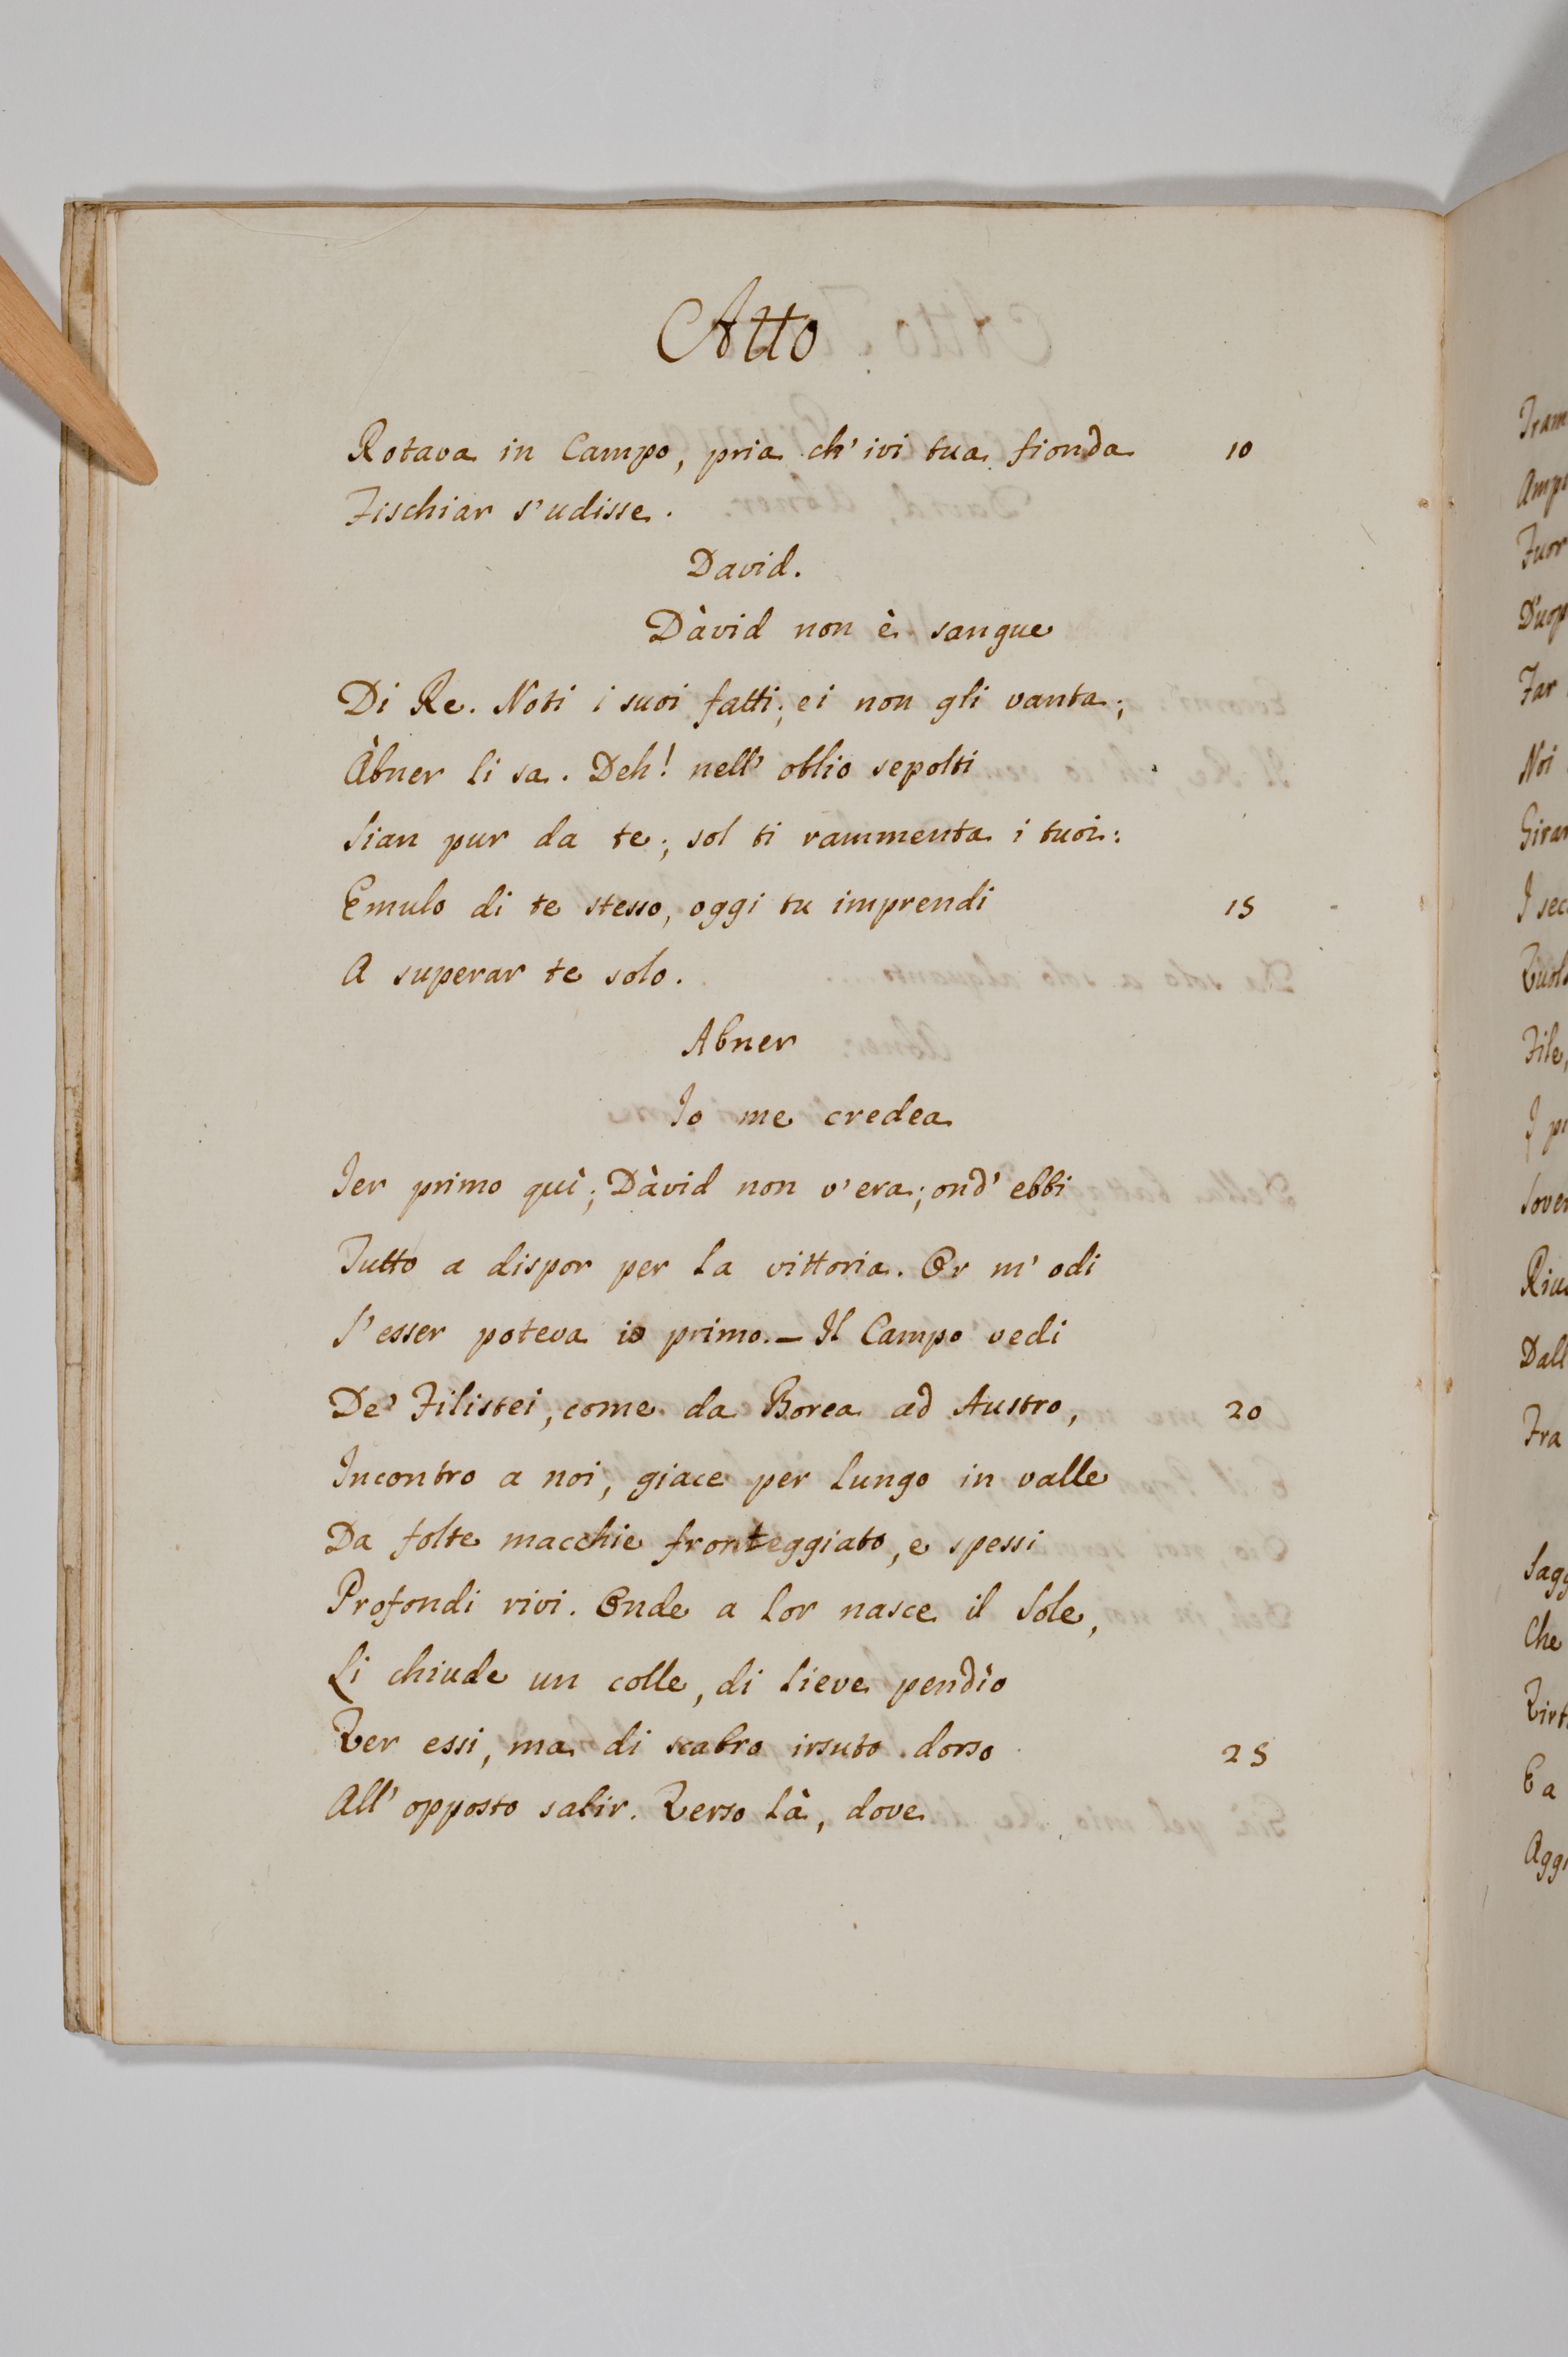 Atto
Rotava in Campo, pria ch' ivi tua fionda 10
Fischiar s'udisse.
David.
Dàvid non è sangue
Di Re. Noti i suoi fatti; ei non gli vanta;
Àbner li sa. Deh! nell' oblio sepolti
Sian pur da te; sol ti rammenta i tuoi:
Emulo di te stesso, oggi tu imprendi 15
A superar te solo.
Abner
Io me credea
Ier primo quì; Dàvid non v'era; ond' ebbi
Tutto a dispor per la vittoria. Or m' odi
S'esser poteva io primo. — Il Campo vedi
De' Filistei, come da Borea ad Austro, 20
Incontro a noi, giace per lungo in valle
Da folte macchie fronteggiato, e spessi
Profondi rivi. Onde a lor nasce il Sole,
Li chiude un colle, di lieve pendìo
Ver essi, ma di scabro irsuto dorso 25
All' opposto salir. Verso là, dove
Tram
Ampi
Fuor
D'uop
Far
Noi
Giran
I sec
Vuols
File,
I pi
Sover
Riu
Dall
Fra
Sagg
Che
Virt
E a
Aggi